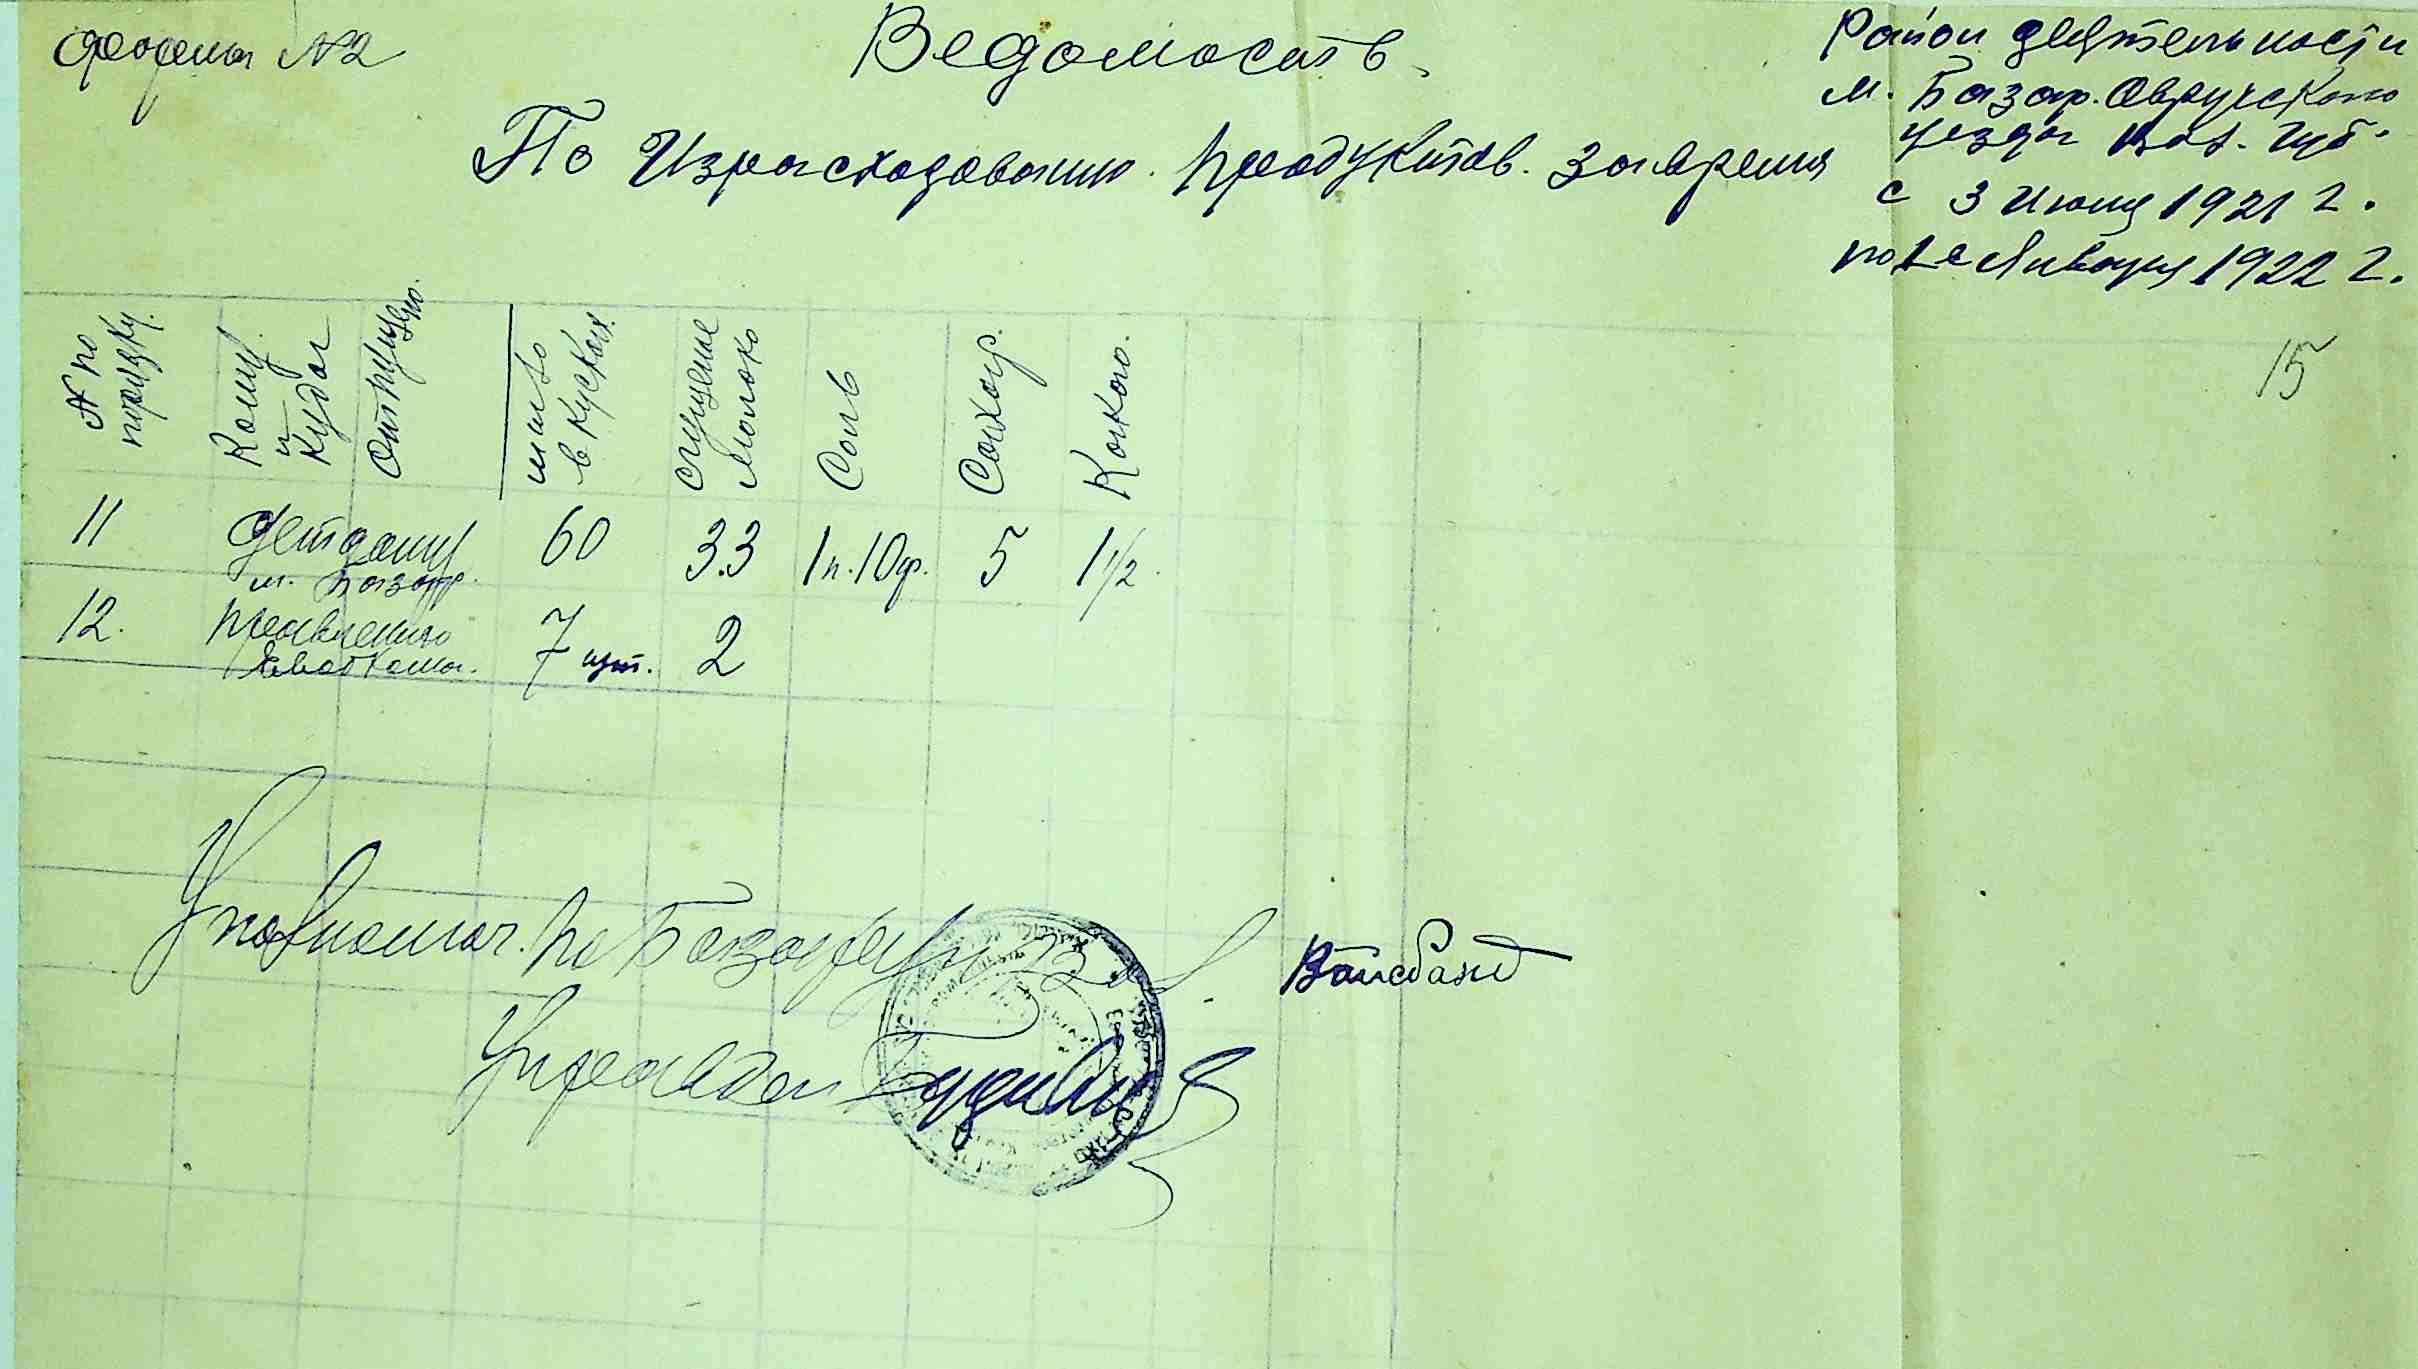 форма №2
Ведомость.
Район деятельности
м. Базар. Овручского
уезда Вол. Губ.
По Израсходованию. продуктов. За время
с 3 июня 1921 г.
по 1е Января 1922 г.
15
№ по порядку.
Кому и куда
отпущено.
мыло в кусках.
сгущеное молоко
Соль
Сахар.
Какао.
11 Детдому м. Базар. 60 33 1п.10ф. 5 1½
12. Правлению Евобкома. 7 7 шт. 2
Уполномоч. по Базару Вайсбанд
Управдел